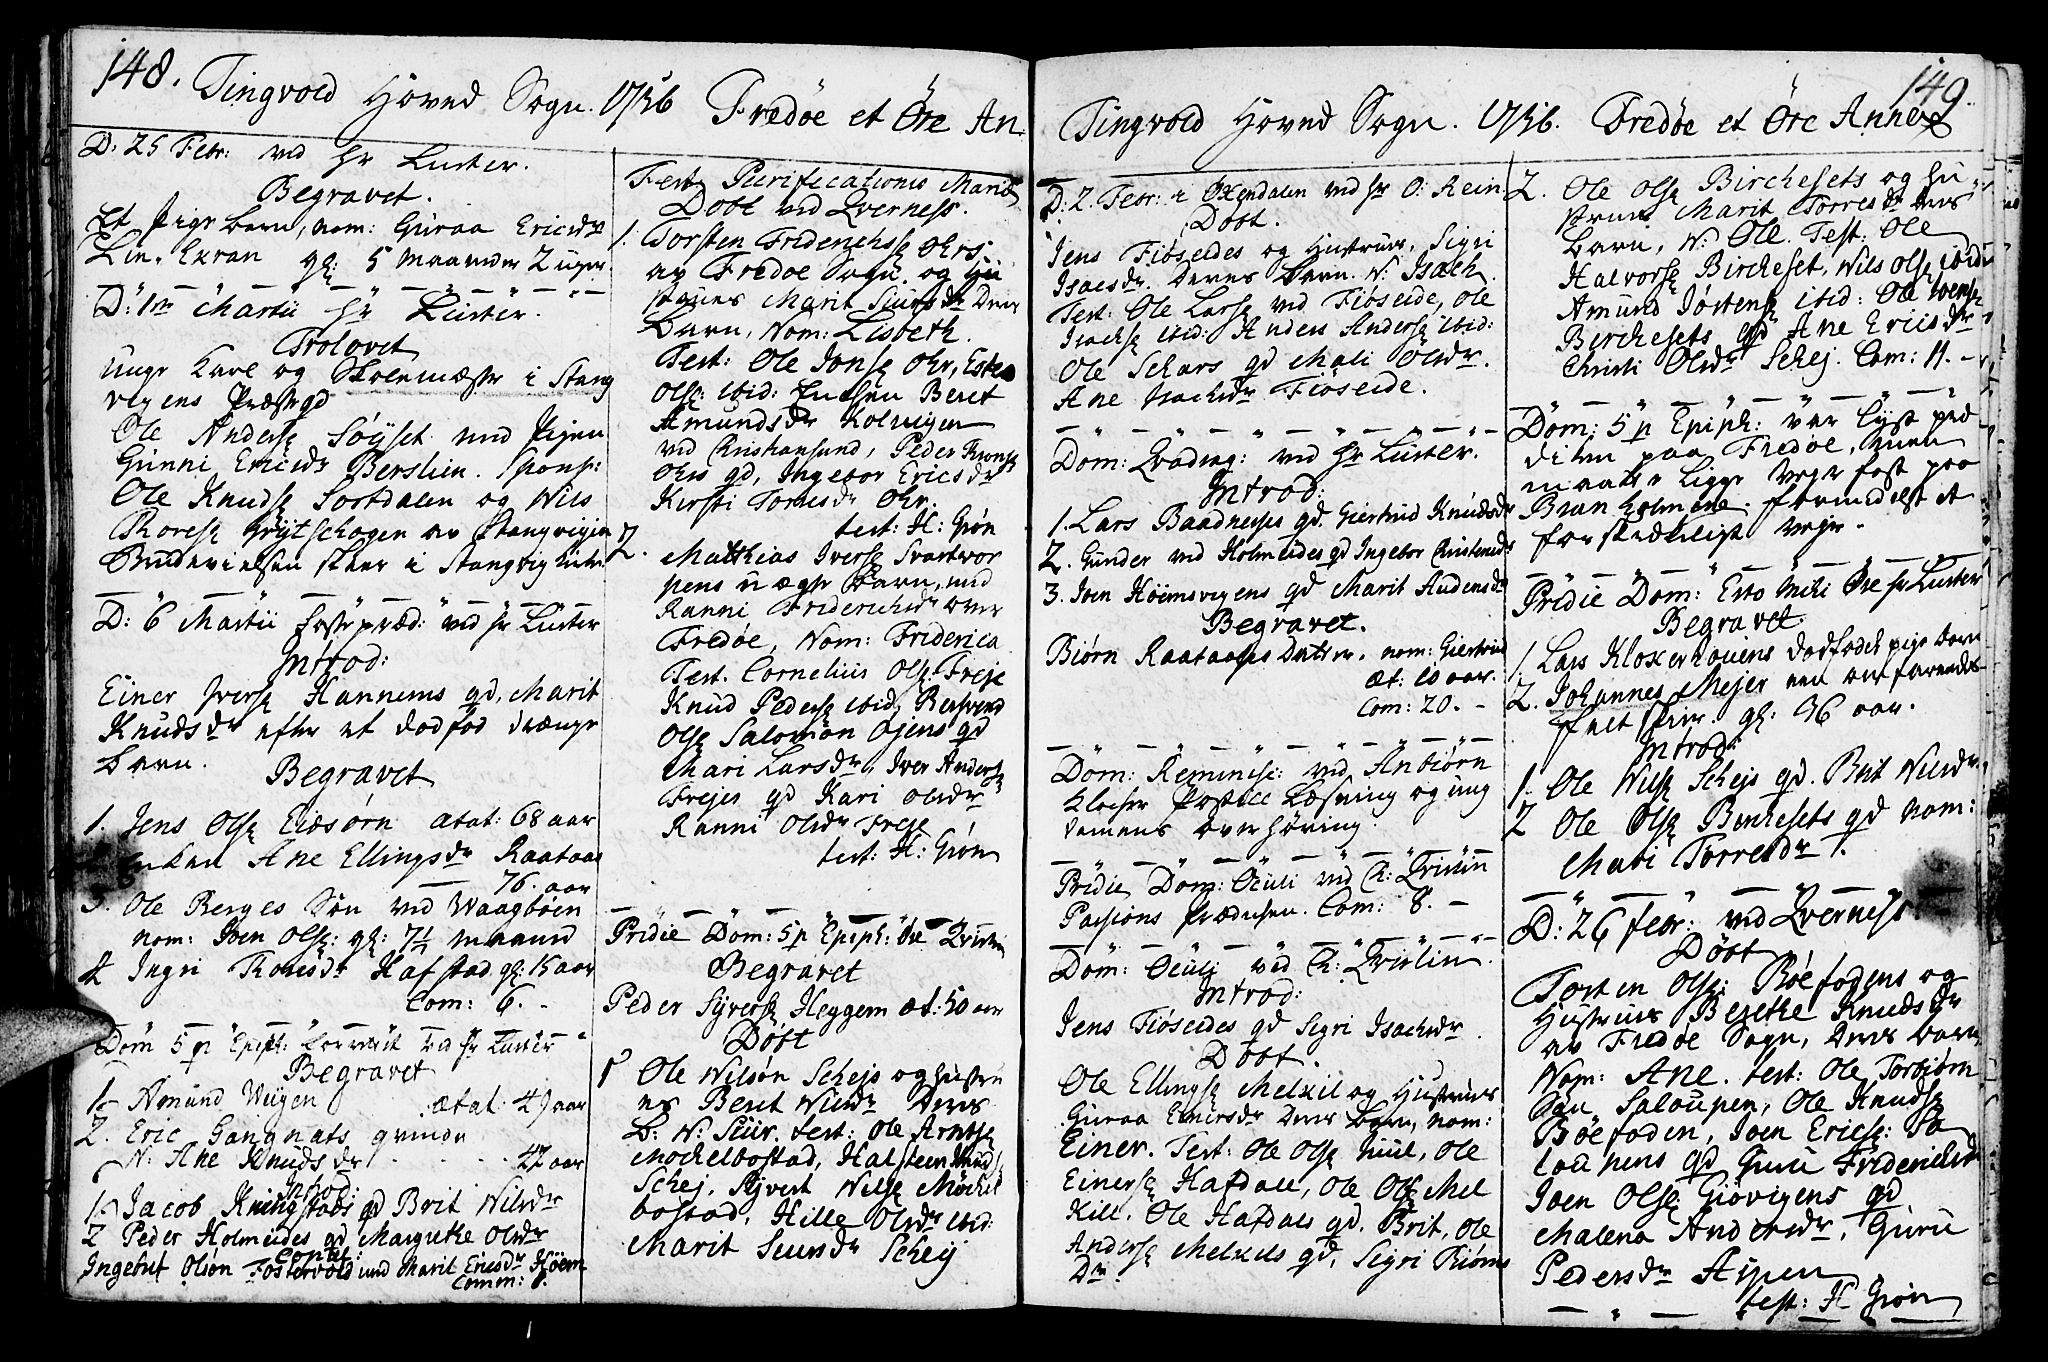 148. Tingvold Hoved Sogn. 1756 Fredøe et Öre An.
D: 25 Febr: ved Hr Luster.
Begravet.
Et Pige barn, nom: Guraa Ericsdr
Lin. Exran gl: 5 maaneder 2 uger
D: 1m Martii Hr Luster.
Trolovet
unge Karl og Skolemæster i Stang
vigens Præstegd
Ole Anderss Söyset med Pigen
Gunni Ericsdr Berslien. Spons:
Ole Knudss Sortdalen og Nils
Thoress Grytschogen av Stangvigen
Brudevielsen skeer i Stangvig Kirke
D: 6 Martii faste præd: ved Hr Luster
Introd:
Einer Iverss Hannems gd, Marit
Knudsdr efter et dødfød drænge
barn.
Begravet
1. Jens Olss Eidsörn ætat: 68 aar
Enken Ane Ellingsdr Raataas
76. aar
3. Ole Berges Sön ved Waagböen
nom: Joen Olss: gl: 7½ maaned
4 Ingri Thoresdr Hafstad gl: 15 aar
Com: 6. -
Dom 5 p Epiph: ved Hr Luster
Begravet
1. Amund Wiigen ætat. 49 aar
2. Eric Gangnats qvinde
N: Ane Knudsdr 47 aar
Introd:
1. Jacob Kningstads gd Brit Nilsdr
2 Peder Holmeides gd Margrethe Olsdr
Copul:
Ingebrt Olsön Fostervold med Marit Ericsdr Höem
Comm: 8.
Fest. Purificationis Mariæ
Döbt ved Qverness.
1. Torsten Fridrichss Ohrs
av Fredøe Sogn og Hu
struës Marit Siursdr Deres
Barn, Nom: Lisbeth.
Test: Ole Jonss Ohr, Esten
Olss: ibid: Enchen Beret
Amundsdr Kolvigen
ved Christiansund, Peder Frens
Ohrs gd, Ingebor Ericsdr
Kirsti Tomesdr Ohr.
test: H: Grön
2. Matthias Iverss Svartvor
pens uægte Barn, med
Ranni Friderichsdr over
Fredøe, Nom: Friderica
Test. Cornelius Olss Freje
Knud Pederss ibid, Bersvend
Olss Salomön Ojens gd
Mari Larsdr, Iver Anderss
Frejes gd Kari Olsdr
Ranni Olsdr Freje
test: H: Grön
Pridie Dom: 5 p Epiph: Öre Qvislin
Begravet
Peder Syverss Heggem æt: 50 aar
Döbt
1 Ole Nilsön Schejs og Hustru
es Berit Nilsdr Deres
B: N: Siur. test: Ole Arntss
Mockelbostad, Halsteen Knuds
Schej, Syvert Nilss Möckel
bostad, Hille Olsdr ibid:
Marit Siursdr Scheij
149.
Tingvold Hoved Sogn. 1756. Fredøe et Öre Annex
D: 2 Febr: i Öxendalen ved Hr O: Rein
Döbt.
Jens Fiöseides og Hustrues, Sigri
Isacsdr. Deres Barn. N: Isach.
Test: Ole Larss ved Fiöseide, Ole
Isachss ibid: Anders Anderss ibid:
Ole Schars gd Mali Olsdr.
Ane Isachsdr Fiöseide.
Dom: Qvadrag: ved Hr Luster.
Introd:
1. Lars Baadnesses gd. Giertrud Knudsdr
2. Gunder ved Holmeides gd Ingebor Christensdr
3. Joen Höemsvigens gd Marit Audensdr
Begravet.
Biörn Raataases Datter, nom: Giertrud
æt: 10 aar.
Com: 20. -
Dom: Reminisc: ved Anbiörn
Klocker Postill Læsning og ung
domens overhöring.
Pridie Dom: Oculi ved C: Qvislin
Passions Prædiken. Com: 8. -
Dom: Oculi ved C: Qvislin.
Introd:
Jens Fiöseides gd Sigri Isachsdr.
Döbt.
Ole Ellingss Melkil og Hustrues
Guraa Einersdr Deres Barn, nom:
Einer. Test: Ole Olss Juul, Ole
Einerss Hafdall, Ole Olss Mel
kill. Ole Hafdals gd. Brit, Ole
Anderss Melkils gd, Sigri Thöms
Dr.
2. Ole Olss Birchesets og Hu
strues Marit Torresdr Deres
Barn, N: Ole. Test: Ole
Halvorss Bircheset, Nils Olss ibid
Amund Jöstenss ibid: Ole Joenss
Birchesets gd Ane Ericsdr
Christi Olsdr Schej. Com: 11. -
Dom: 5 p Epiph: var lyst præ
diken paa Fredøe, men
maatte ligge vejr fast paa
Bran holmene formedelst et
forskrækkeligt vejr.
Pridie Dom: Esto Mihi Öre Hr Luster
Begravet
1. Lars Kloxerhouens dødfödt pige barn
2. Johannes Mejer een omfarende
gl: 96 aar.
Introd:
1. Ole Nilss Schejs gd. Brit Nilsdr.
2 Ole Olss Birchesets gd nom:
Mari Torresdr
D: 26 febr: ved Qverness
Döbt
Torsten Olss: Böefodens og
Hustrues Berethe Knudsdr
av Fredøe Sogn, Deres barn
Nom: Ane. test: Ole Torbiörn
Sön Saloupen, Ole Knudss
Böefoden, Joen Ericss: Sa
loupens gd Guru Friderichsdr
Joen Olss Giövigens gd
Malena Andersdr, Guru
Pedersdr Aspen
test: H Grön